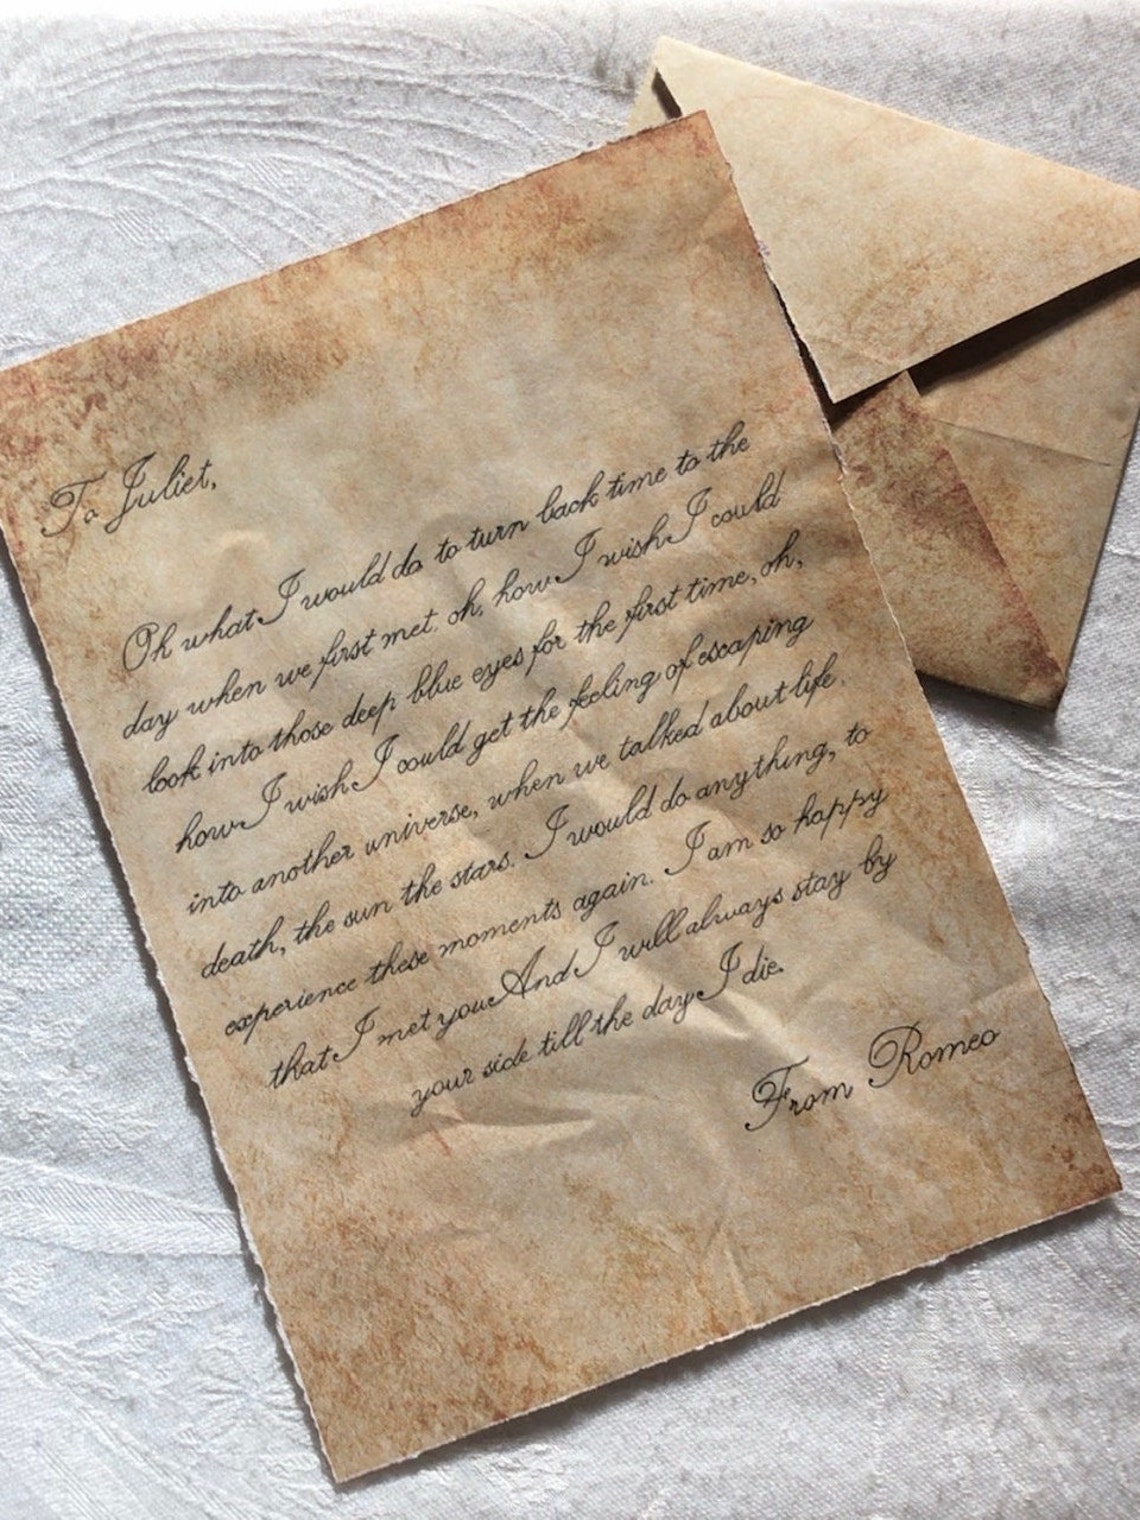 To Juliet,
Oh what I would do to turn back time to the
day when we first met. oh, how I wish I could
look into those deep blue eyes for the first time, oh,
how I wish I could get the feeling of escaping
into another universe, when we talked about life.
death, the sun the stars. I would do anything, to
experience these moments again. I am so happy
that I met you And I will always stay by
your side till the day I die.
From Romeo